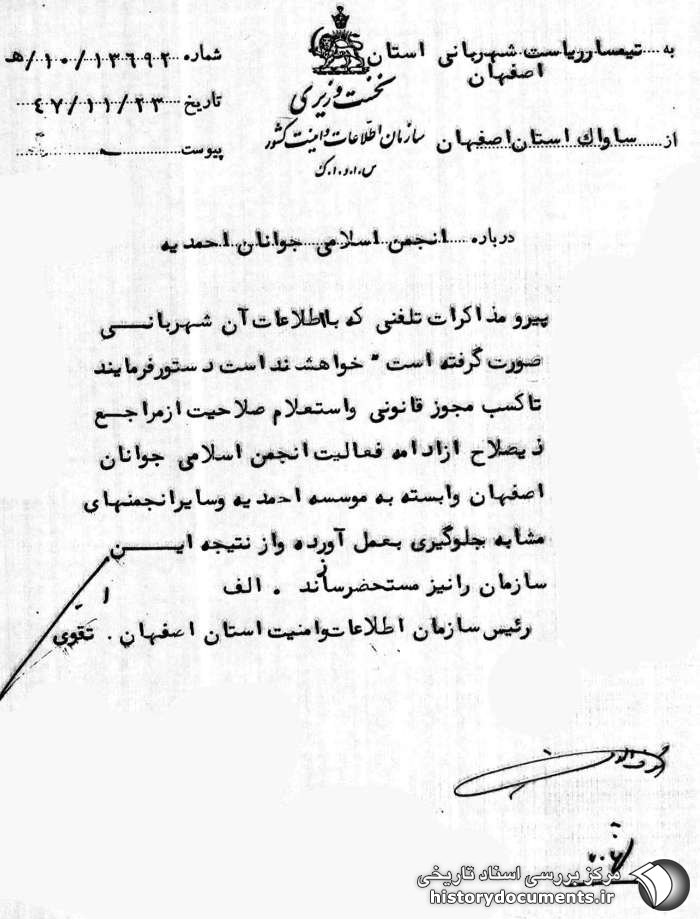 به تیمسار ریاست شهربانی استان
اصفهان
از ساواک استان اصفهان
نخست وزیری
سازمان اطلاعات و امنیت کشور
س.ا.و.ا.ک
شماره ۱۰/۱۳۶۹۲/ه‍
تاریخ ۴۷/۱۱/۲۳
پیوست
درباره انجمن اسلامی جوانان احمدیه
پیرو مذاکرات تلفنی که با اطلاعات آن شهربانی
صورت گرفته است " خواهشمند است دستور فرمایند
تا کسب مجوز قانونی و استعلام صلاحیت از مراجع
ذیصلاح از ادامه فعالیت انجمن اسلامی جوانان
اصفهان وابسته به موسسه احمدیه و سایر انجمنهای
مشابه جلوگیری بعمل آورده و از نتیجه این
سازمان را نیز مستحضر سازند . الف
رئیس سازمان اطلاعات و امنیت استان اصفهان . تقوی
مرکز بررسی اسناد تاریخی
historydocuments.ir